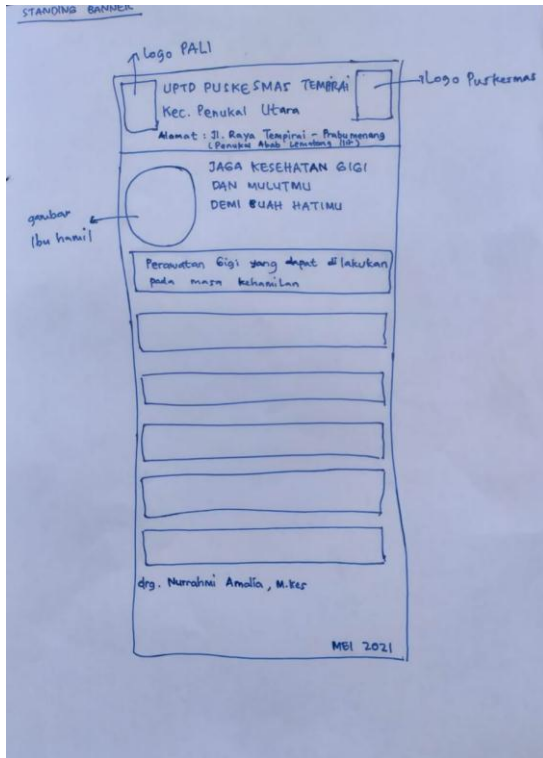 STANDING BANNER
Logo PALI
UPTD PUSKESMAS TEMPIRAI
Logo Puskesmas
Kec. Penukal Utara
Alamat : Jl. Raya Tempirai - Prabumenang
(Penukal Abab Lematang Ilir)
JAGA KESEHATAN GIGI
DAN MULUTMU
DEMI BUAH HATIMU
gambar
Ibu hamil
Perawatan Gigi yang dapat dilakukan
pada masa kehamilan
drg. Nurrahmi Amalia, M.Kes
MEI 2021